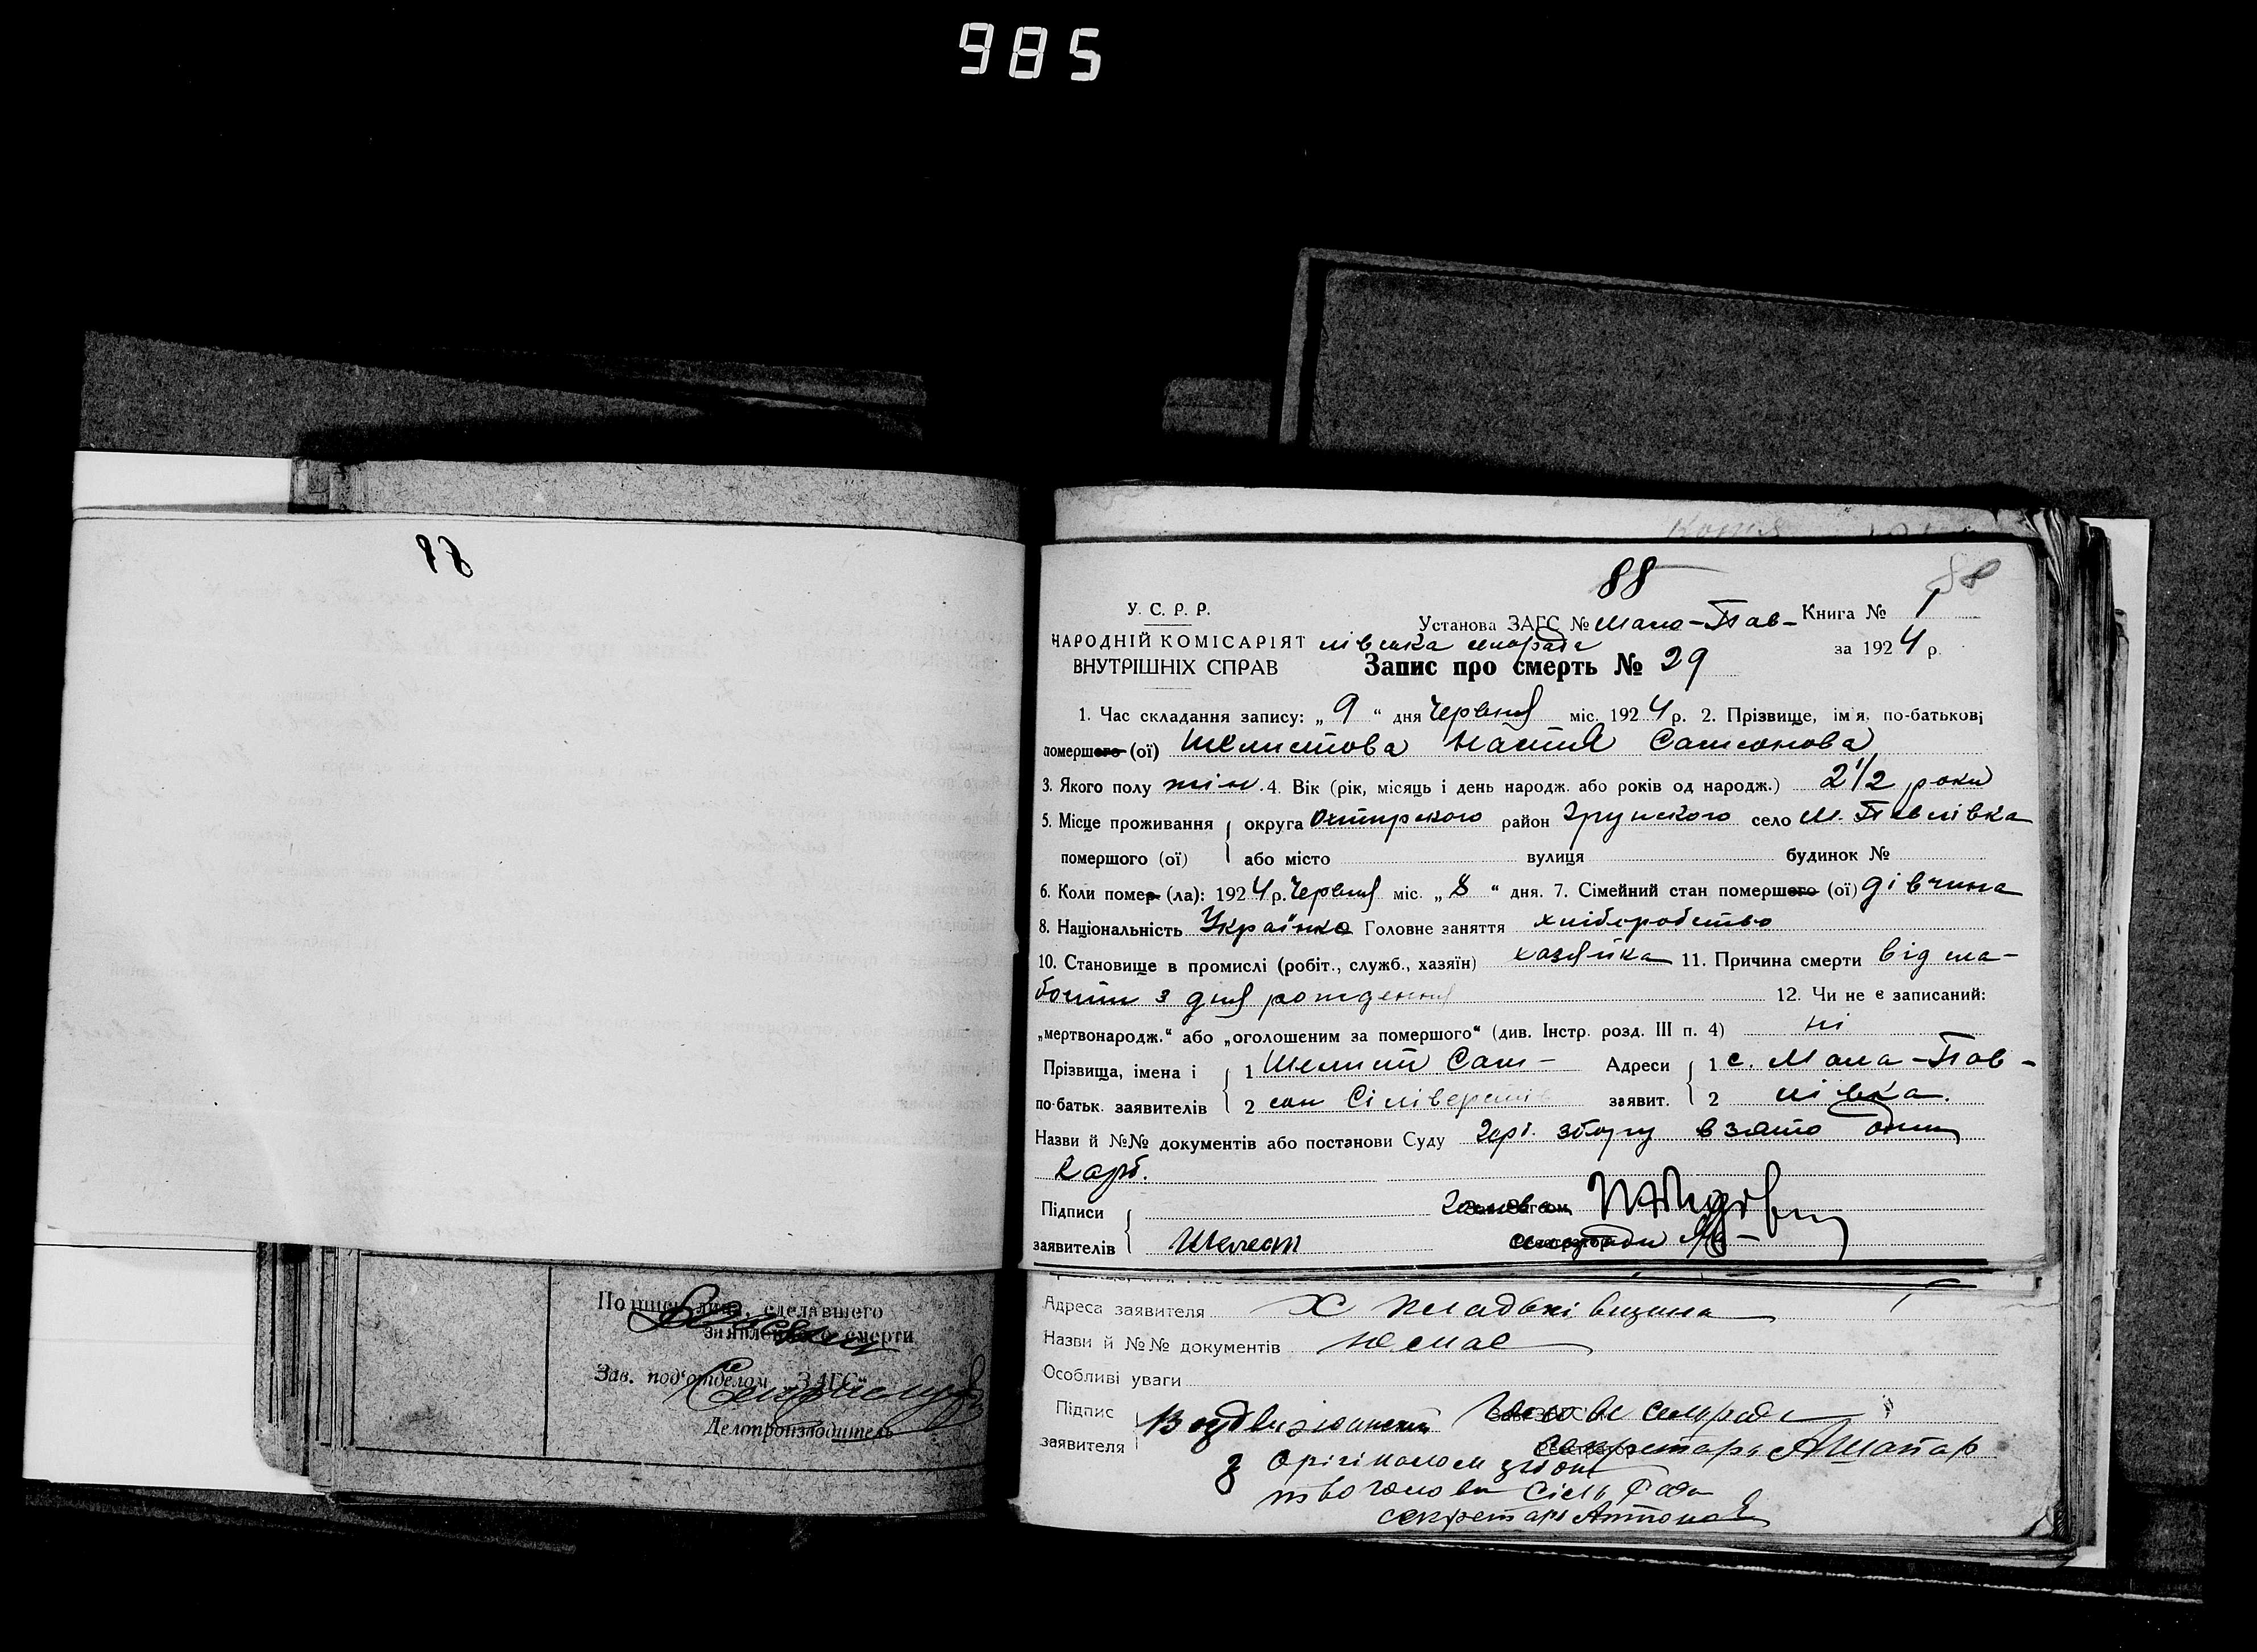 985
87
88
88
У. С. Р. Р.
НАРОДНІЙ КОМІСАРІЯТ
ВНУТРІШНІХ СПРАВ
Установа ЗАГС № Мало-Пав-
лівська сельрада
Книга № 1
за 1924 р.
Запис про смерть № 29
1. Час складання запису: „ 9 “ дня Червня міс. 1924 р. 2. Прізвище, ім'я, по-батькові
помершого (ої) Шелистова Настя Самсонова
3. Якого полу жін. 4. Вік (рік, місяць і день народж. або років од народж.) 2 1/2 роки
5. Місце проживання округа Охтирского район Грунского село М. Павлівка
помершого (ої) або місто вулиця будинок №
6. Коли помер (ла): 1924 р. Червня міс. „ 8 “ дня. 7. Сімейний стан помершого (ої) дівчина
8. Національність Українка Головне заняття хліборобство
10. Становище в промислі (робіт., служб., хазяїн) хазяйка 11. Причина смерти від сла-
бости з дня рождення 12. Чи не є записаний:
„мертвонародж.“ або „оголошеним за помершого“ (див. Інстр. розд. III п. 4) ні
Прізвища, імена і 1 Шелест Сам- Адреси 1 с. Мала-Пав-
по-батьк. заявителів 2 сон заявит. 2 лівка.
Назви й №№ документів або постанови Суду Герб. збору взято один
Карб.
Підписи Голова
заявителів Шелест сельради
Адреса заявителя Х
Назви й №№ документів немає
Особливі уваги
Підпис сельради
заявителя секретарь АШапар
З Орігіналом
Голови Сіль Рада
секретарь
Подпись лица, сделавшего
заявление о смерти
Зав. под'отделом „ЗАГС“
Делопроизводитель